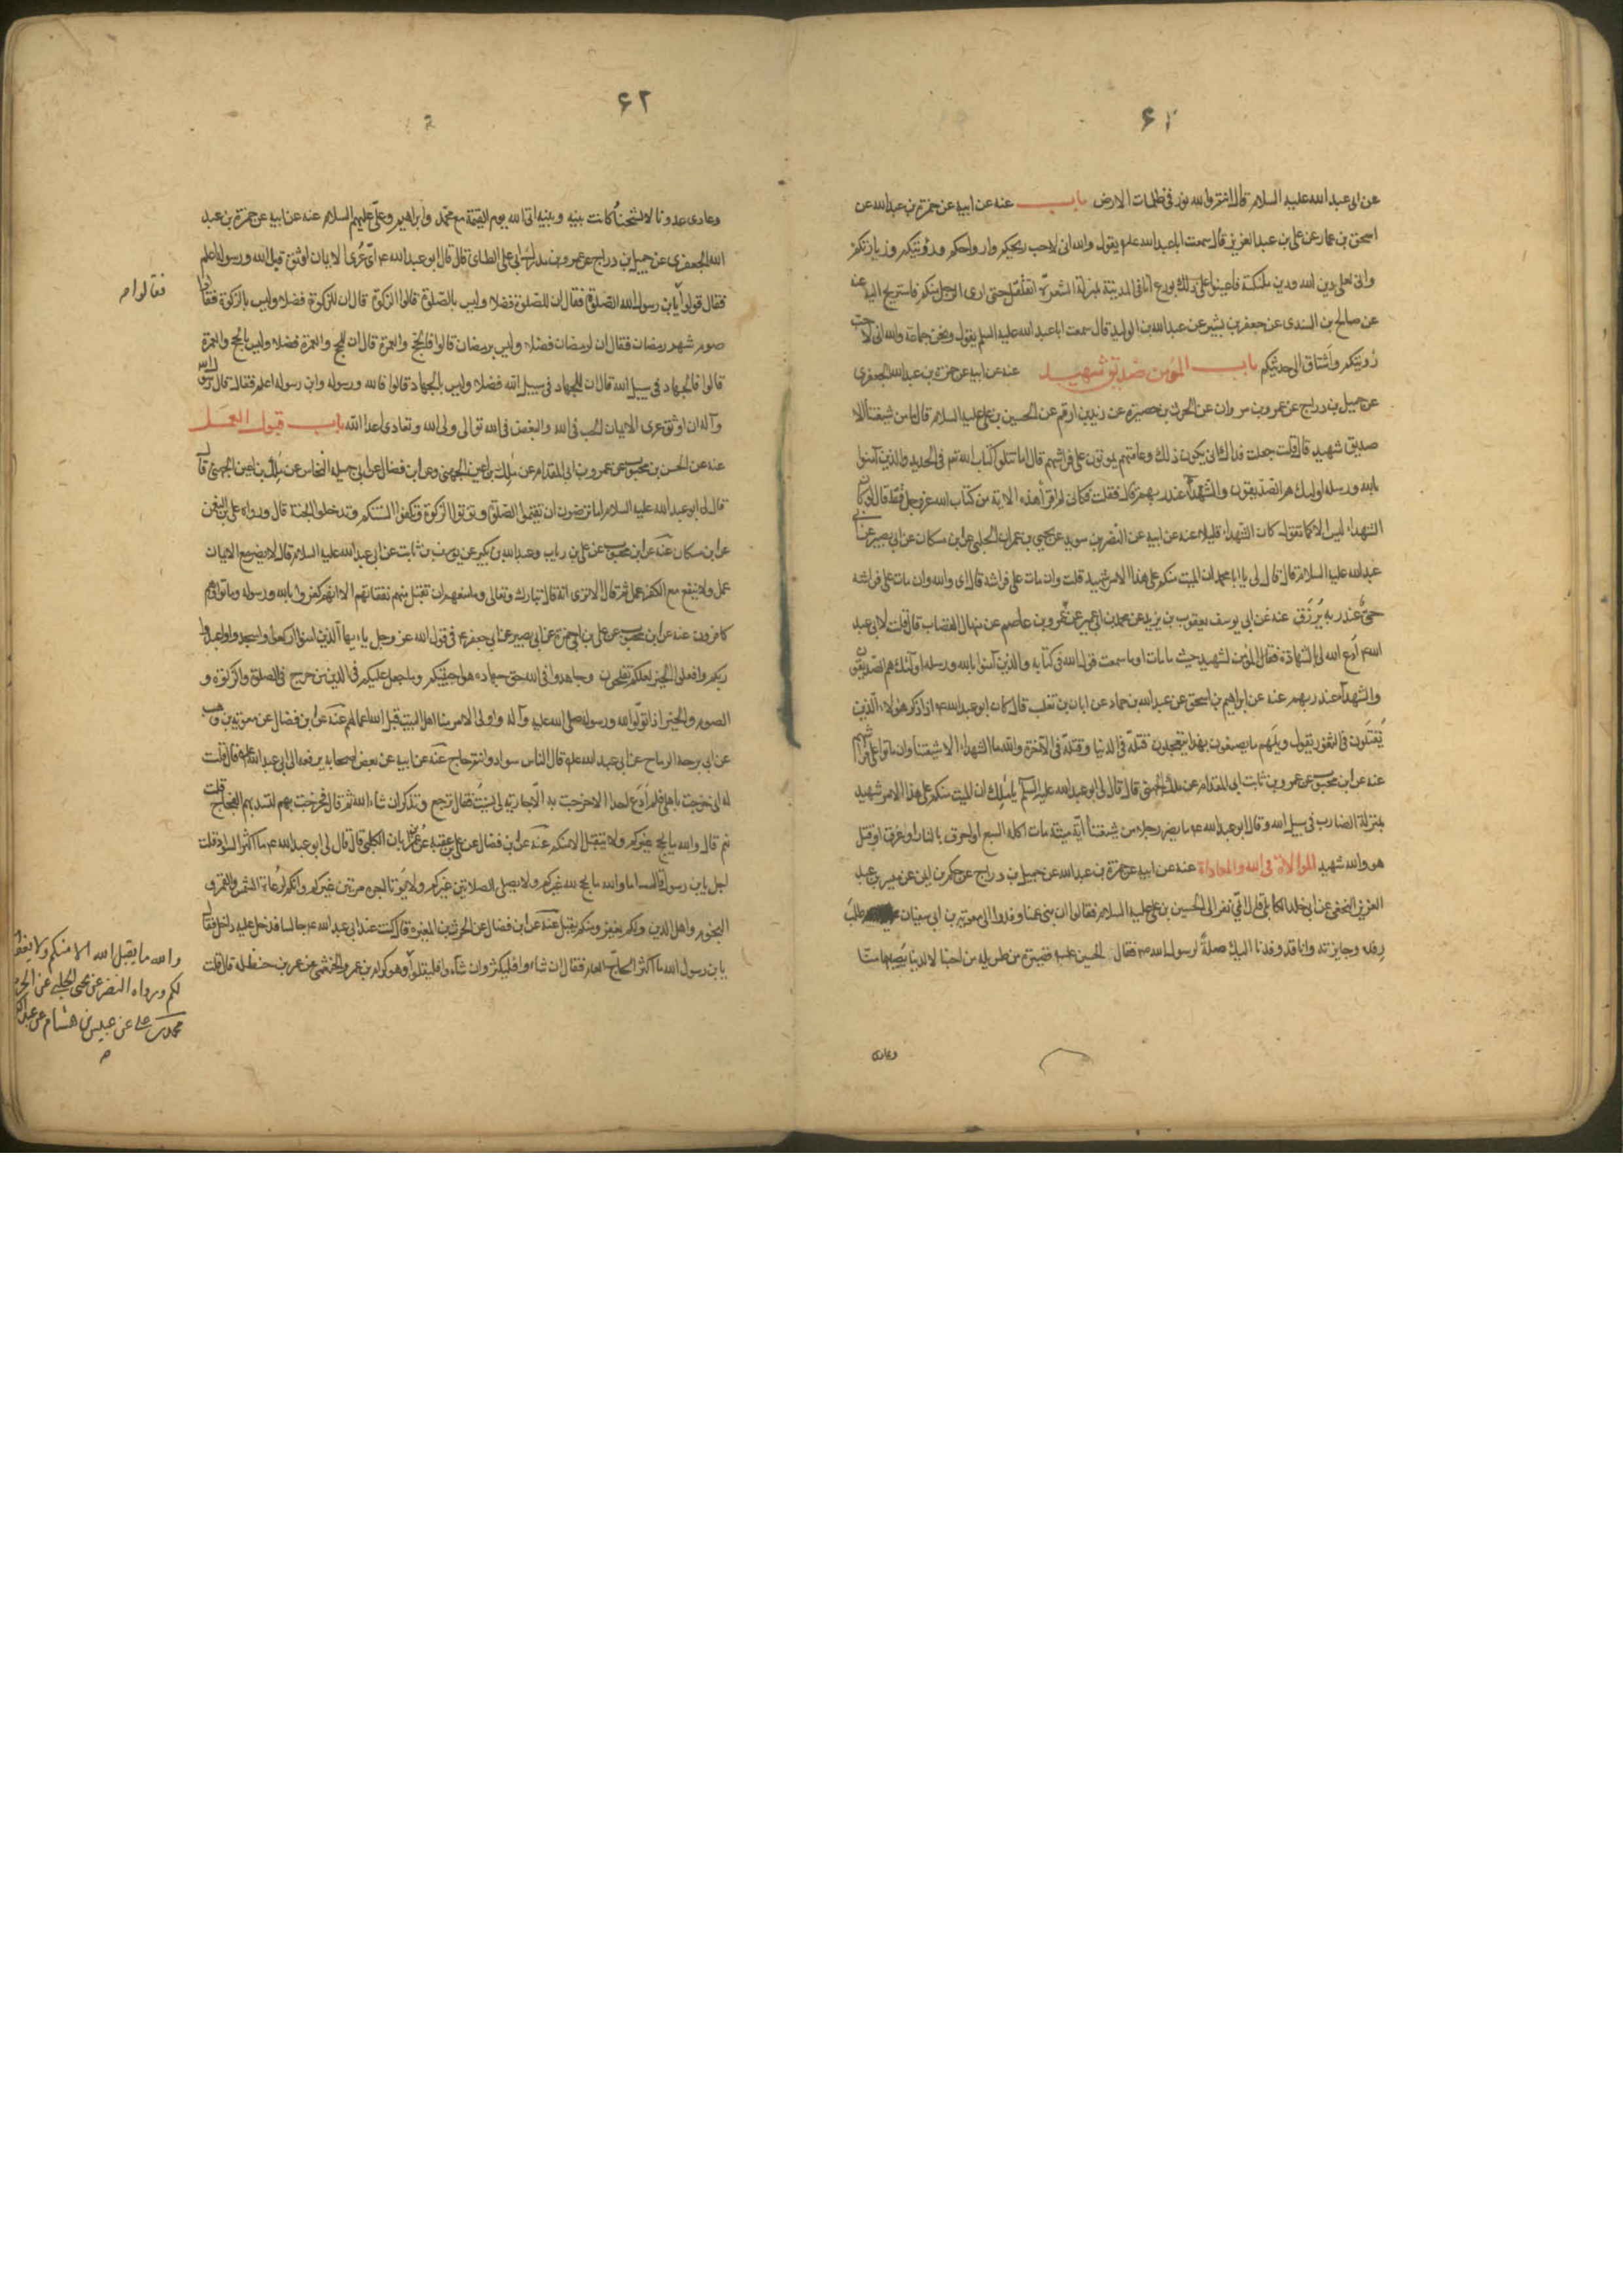 ۶۱
عن ابی عبد الله علیه السلام قال انتم والله نور فی ظلمات الارض باب عنه عن ابیه عن حمزة بن عبدالله عن
اسحق بن عمار عن علی بن عبد العزیز قال سمعت اباعبدالله علیه یقول والله انی لاحب ریحکم وارواحکم ورؤیتکم وزیارتکم
وانی لعلی دین الله ودین ملئکته فاعینوا علی ذلک بورع انا فی المدینة بمنزلة الشعرة اتقلقل حتی اری الرجل منکم فاستریح الیه عنه
عن صالح بن السندی عن جعفر بن بشیر عن عبدالله بن الولید قال سمعت اباعبدالله علیه السلم یقول ونحن جماعة والله انی لاحب
رؤیتکم واشتاق الی حدیثکم باب المؤمن صدیق شهید عنه عن ابیه عن حمزة بن عبدالله الجعفری
عن جمیل بن دراج عن عمرو بن مروان عن الحرث بن حصیرة عن زید بن ارقم عن الحسین بن علی علیه السلام قال ما من شیعتنا الا
صدیق شهید قال قلت جعلت فداک انی یکون ذلک وعامتهم یموتون علی فراشهم قال اما تتلو کتاب الله فی الحدید والذین آمنوا
بالله ورسله اولئک هم الصدیقون والشهداء عند ربهم قال فقلت فکانی لم اقرأ هذه الایة من کتاب الله عز وجل قط قال لو کان
الشهداء لیس الا کما تقول کان الشهداء قلیلا عنه عن ابیه عن النضر بن سوید عن یحیی بن عمران الحلبی عن ابن مسکان عن ابی بصیر عن ابی
عبدالله علیه السلام قال قال لی یا بامحمد ان المیت منکم علی هذا الامر شهید قلت وان مات علی فراشه قال ای والله وان مات علی فراشه
حی عند ربه یرزق عنه عن ابی یوسف یعقوب بن یزید عن محمد بن ابی عمیر عن عمرو بن عاصم عن منهال القصاب قال قلت لابی عبد
الله ادع الله لی بالشهادة فقال المؤمن لشهید حیث ما مات او ما سمعت قول الله فی کتابه والذین آمنوا بالله ورسله اولئک هم الصدیقون
والشهداء عند ربهم عنه عن ابراهیم بن اسحق عن عبدالله بن حماد عن ابان بن تغلب قال کان ابو عبدالله اذا ذکر هؤلاء الذین
یقتلون فی الثغور یقول ویلهم ما یصنعون بهذا یتعجلون قتلة فی الدنیا وقتلة فی الآخرة والله ما الشهداء الا شیعتنا وان ماتوا علی فرشهم
عنه عن ابن محبوب عن عمرو بن ثابت ابی المقدام عن ملک الجهنی قال قال لی ابو عبدالله علیه السلم یا ملک ان المیت منکم علی هذا الامر شهید
بمنزلة الضارب فی سبیل الله وقال ابو عبدالله ما یضر رجلا من شیعتنا ایة میتة مات اکله السبع او احرق بالنار او غرق او قتل
هو والله شهید الموالاة فی الله والمعاداة عنه عن ابیه عن حمزة بن عبدالله عن جمیل بن دراج عن حکم بن ایمن عن میسر بن عبد
العزیز النخعی عن ابی خلد الکابلی قال اتی نفر الی الحسین بن علی علیه السلام فقالوا ان بنی عمنا وفدوا الی معویة بن ابی سفیان طلب
رفده وجایزته وانا قد وفدنا الیک صلة لرسول الله فقال الحسین علیه قصیرة من طویلة من احبنا لا لدنیا یصیبها منا
وعادی
۶۲
وعادی عدونا لا لشحناء کانت بینه وبینه اتی الله یوم القیمة مع محمد وابراهیم وعلی علیهم السلام عنه عن ابیه عن حمزة بن عبد
الله الجعفری عن جمیل بن دراج عن عمرو بن مدرک ابی علی الطائی قال قال ابو عبدالله ای عری الایمان اوثق قیل الله ورسوله اعلم
فقالوا
فقال قولوا یا بن رسول الله الصلوة فقال ان للصلوة فضلا ولیس بالصلوة قالوا الزکوة قال ان للزکوة فضلا ولیس بالزکوة فقالوا
صوم شهر رمضان فقال ان لرمضان فضلا ولیس برمضان قالوا فالحج والعمرة قال ان للحج والعمرة فضلا ولیس بالحج والعمرة
قالوا فالجهاد فی سبیل الله قال ان للجهاد فی سبیل الله فضلا ولیس بالجهاد قالوا فالله ورسوله وابن رسوله اعلم فقال قال رسول الله
وآله ان اوثق عری الایمان الحب فی الله والبغض فی الله توالی ولی الله وتعادی اعداء الله باب قبول العمل
عنه عن الحسن بن محبوب عن عمرو بن ابی المقدام عن ملک بن اعین الجهنی وعن ابن فضال عن ابی جمیله النخاس عن ملک بن اعین الجهنی قال
قال لی ابو عبدالله علیه السلام اما ترضون ان تقیموا الصلوة وتؤتوا الزکوة وتکفوا السنتکم وتدخلوا الجنة قال ورواه علی بن النعمن
عن ابن مسکان عنه عن ابن محبوب عن علی بن ریاب وعبدالله بن بکیر عن یوسف بن ثابت عن ابی عبدالله علیه السلام قال لا یضر مع الایمان
عمل ولا ینفع مع الکفر عمل ثم قال الا تری انه قال تبارک وتعالی وما منعهم ان تقبل منهم نفقاتهم الا انهم کفروا بالله ورسوله وماتوا وهم
کافرون عنه عن ابن محبوب عن علی بن ابی حمزة عن ابی بصیر عن ابی جعفر فی قول الله عز وجل یا ایها الذین امنوا ارکعوا واسجدوا واعبدوا
ربکم وافعلوا الخیر لعلکم تفلحون وجاهدوا فی الله حق جهاده هو اجتبیکم وما جعل علیکم فی الدین من حرج فی الصلوة والزکوة و
الصوم والخیر اذا تولوا الله ورسوله صلی الله علیه وآله واولی الامر منا اهل البیت قبل الله اعمالهم عنه عن ابن فضال عن معویة بن وهب
عن ابی برحه الرماح عن ابی عبدالله علیه قال الناس سواد وانتم حاج عنه عن ابیه عن بعض اصحابه یرفعه الی ابی عبدالله قال قلت
له انی خرجت باهلی فلم ادع احدا الا خرجت به الا جاریة لی نسیت فقال ترجع وتذکر ان شاء الله ثم قال فخرجت بهم لتسد بهم الفجاج قلت
نعم قال والله ما یحج غیرکم ولا یتقبل الا منکم عنه عن ابن فضال عن علی بن عقبة عن عمر بن ابان الکلبی قال قال لی ابو عبدالله ما اکثر السواد قلت
اجل یا بن رسول الله قال اما والله ما یحج لله غیرکم ولا یصلی الصلاتین غیرکم ولا یؤتا اجره مرتین غیرکم وانکم لرعاة الشمس والقمر و
النجوم واهل الدین ولکم یغفر ومنکم یقبل عنه عن ابن فضال عن الحرث بن المغیرة قال کنت عند ابی عبدالله جالسا فدخل علیه داخل فقال
یا بن رسول الله ما اکثر الحاج العام فقال ان شاءوا فلیکثروا وان شاءوا فلیقلوا
والله ما یقبل الله الا منکم ولا یغفر الا
لکم ورواه النضر عن یحیی الحلبی عن الحرث
محمد بن علی عن عبیس بن هشام عن عبد الکریم
وهو کرام بن عمرو الخثعمی عن عمر بن حنظله قال قلت